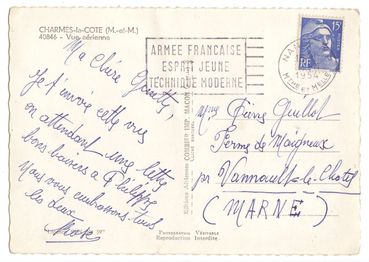 CHARMES-la-COTE (M.-et-M.)
40846 - Vue aérienne
ARMEE FRANCAISE
ESPRIT JEUNE
TECHNIQUE MODERNE
15F
RF
1954
Ma Chère
Je t'envoie cette vue
en attendant une lettre
bons baisers à Philippe
Nous vous embrassons tous
les deux
Editions Aériennes COMBIER IMP. MACON
Mme Pierre Guillot
Ferme de
par Vanault-le-Chatel
(MARNE)
Photographie Véritable
Reproduction Interdite.